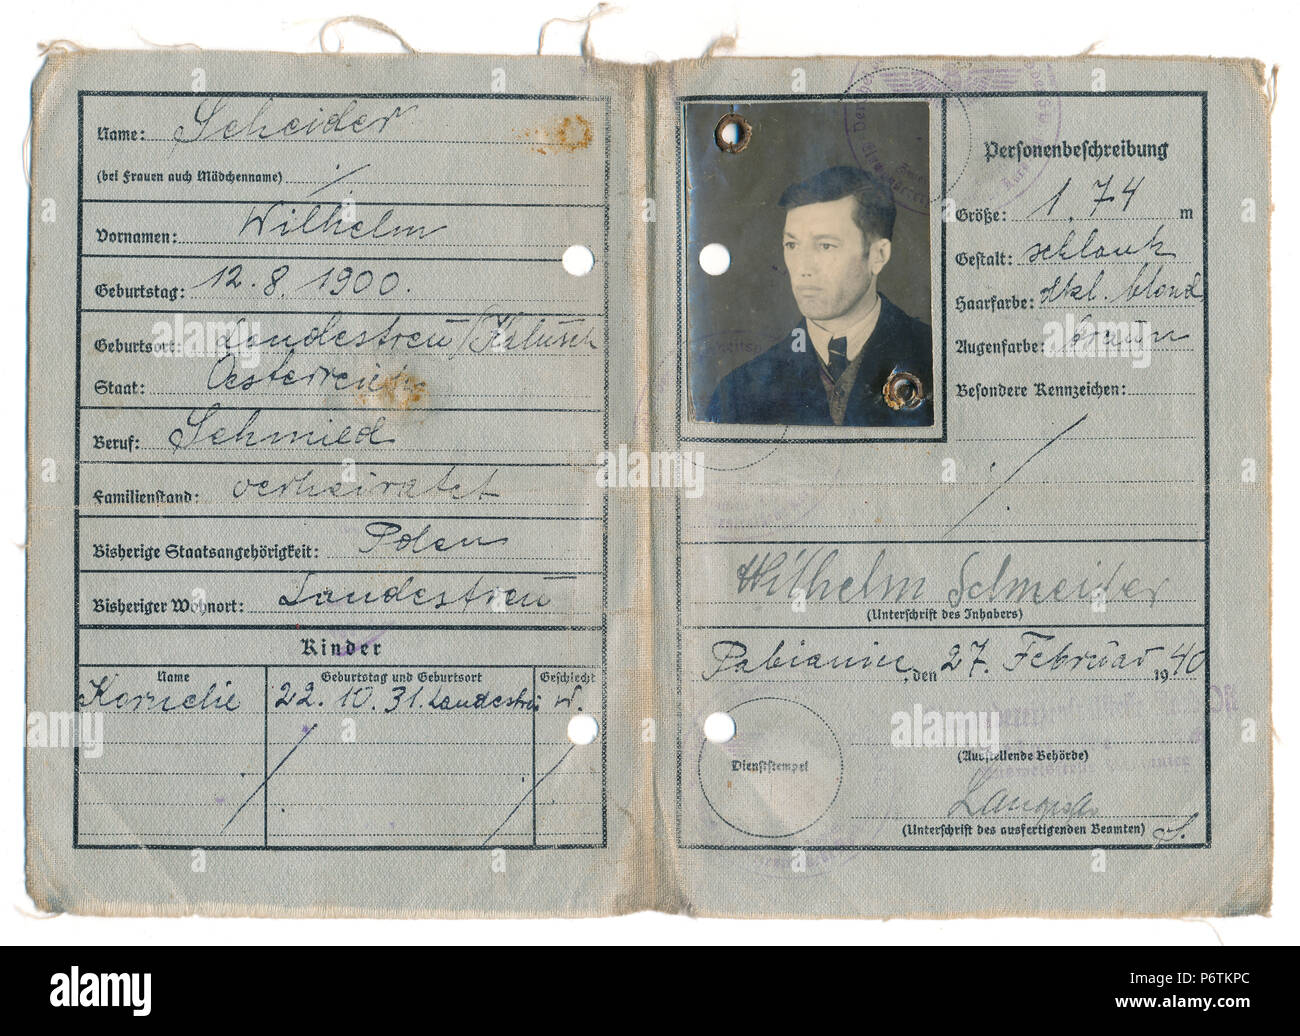 Name: Scheider
(bei Frauen auch Mädchenname)
Vornamen: Wilhelm
Geburtstag: 12.8.1900.
Geburtsort: Landestreu /Kalusch
Staat: Oesterreich
Beruf: Schmied
Familienstand: verheiratet
Bisherige Staatsangehörigkeit: Polen
Bisheriger Wohnort: Landestreu
Kinder
Name Geburtstag und Geburtsort Geschlecht
Kornelie 22.10.31. Landestreu w.
Personenbeschreibung
Größe: 1.74 m
Gestalt: schlank
Haarfarbe: dkl. blond
Augenfarbe: braun
Besondere Kennzeichen:
Wilhelm Schneider
(Unterschrift des Inhabers)
Pabianice, den 27. Februar 1940
(Ausstellende Behörde)
Dienststempel
(Unterschrift des ausfertigenden Beamten)
alamy
Image ID: P6TKPC
www.alamy.com